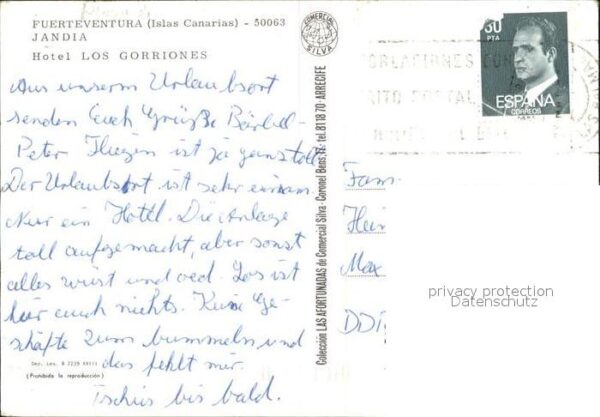 FUERTEVENTURA (Islas Canarias) - 50063
JANDIA
Hotel LOS GORRIONES
Aus unserm Urlaubsort
senden Euch Grüße Bärbel -
Peter Fliegen ist ja ganz toll
Der Urlaubsort ist sehr einsam
Nur ein Hotel. Die Anlage
toll aufgemacht, aber sonst
alles wüst und oed. Los ist
hier auch nichts. Keine Ge-
schäfte zum bummeln und
das fehlt mir.
Tschüs bis bald.
Dep. Leg. B
(Prohibida la reproducción)
COMERCIAL SILVA
Colección LAS AFORTUNADAS de Comercial Silva - Coronel Bens, 12 - Tel. 81 18 70 - ARRECIFE
30 PTA
ESPAÑA
CORREOS
POSTAL
Fam.
Hein
Max
DD
privacy protection
Datenschutz